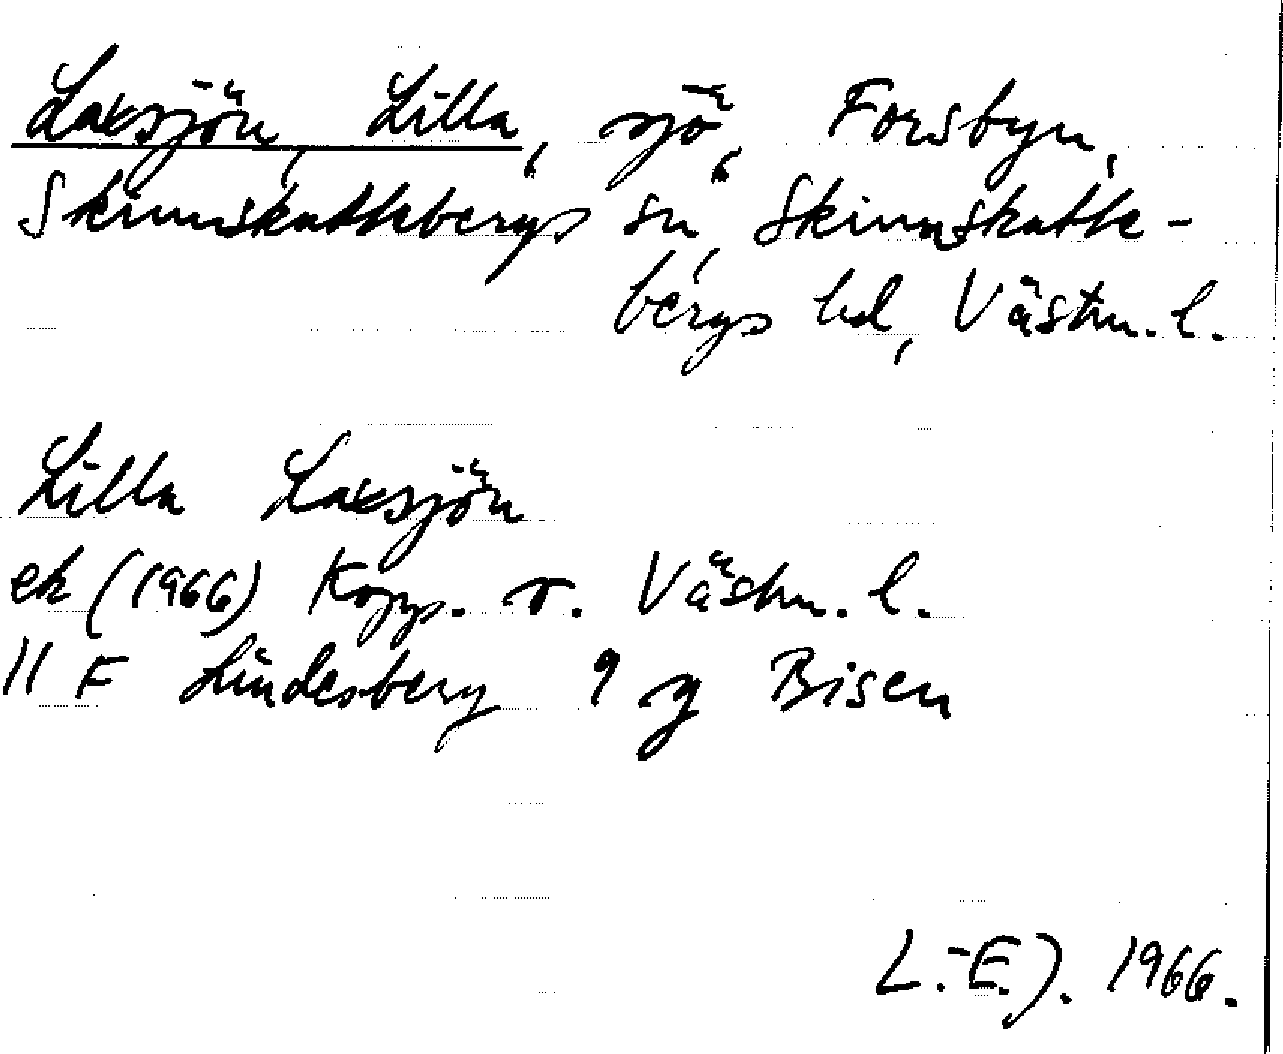 Laxsjön, Lilla, sjö, Forsbyn,
Skinnskattebergs sn, Skinnskatte-
bergs hd, Västm. l.
Lilla Laxsjön
ek (1966) Kopp. o. Västm. l.
11 F Lindesberg 9 g Bisen
L.-E.J. 1966.